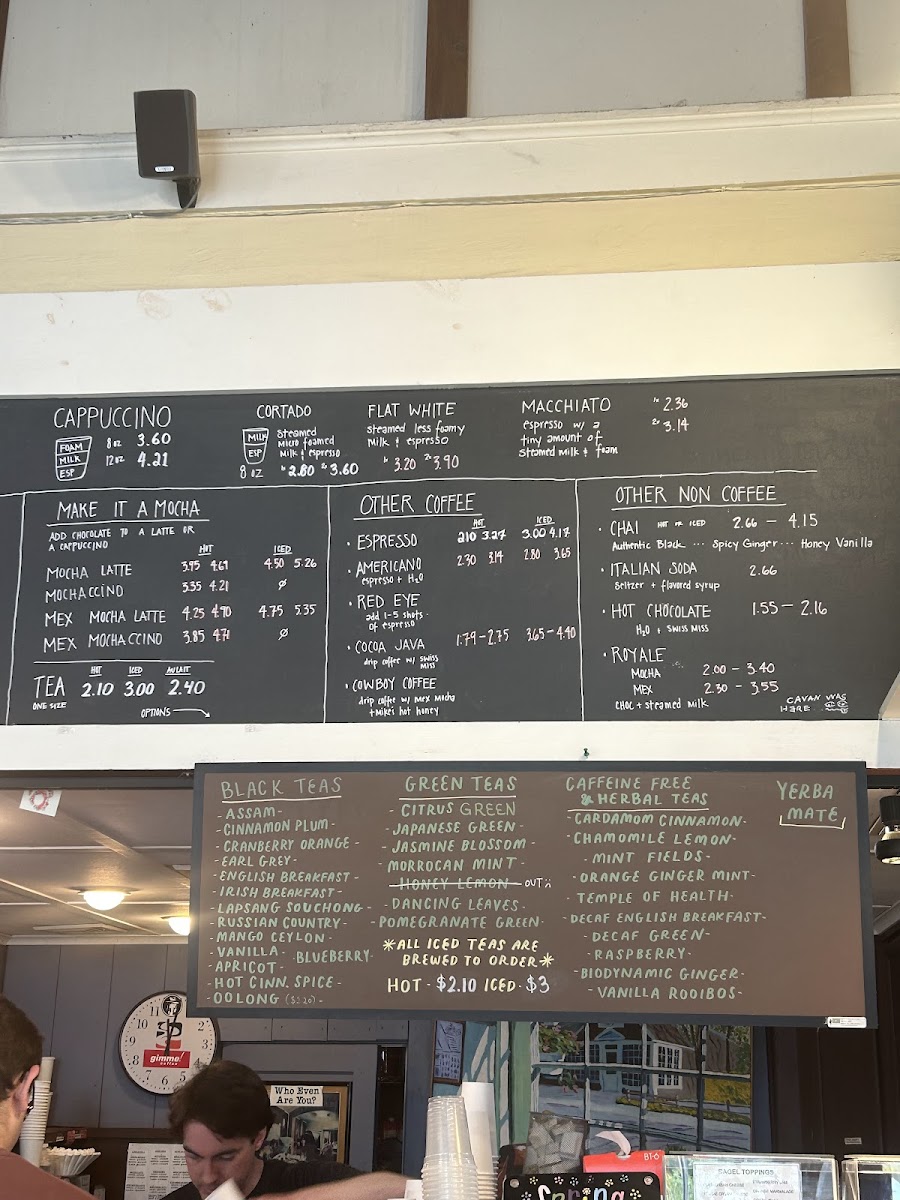 CAPPUCCINO
FOAM
MILK
ESP
8 oz 3.60
12 oz 4.21
CORTADO
MILK
ESP
steamed
micro foamed
milk & espresso
8 oz 1x 2.80 2x 3.60
FLAT WHITE
steamed less foamy
milk & espresso
1x 3.20 2x 3.90
MACCHIATO
espresso w/ a
tiny amount of
steamed milk & foam
1x 2.36
2x 3.14
MAKE IT A MOCHA
ADD CHOCOLATE TO A LATTE OR
A CAPPUCCINO
HOT ICED
MOCHA LATTE 3.95 4.61 4.50 5.26
MOCHACCINO 3.35 4.21 Ø
MEX MOCHA LATTE 4.25 4.70 4.75 5.35
MEX MOCHACCINO 3.85 4.71 Ø
HOT ICED AU LAIT
TEA 2.10 3.00 2.40
ONE SIZE
OPTIONS
OTHER COFFEE
HOT ICED
• ESPRESSO 2.10 3.27 3.00 4.17
• AMERICANO 2.30 3.14 2.80 3.65
espresso + H₂O
• RED EYE
add 1-5 shots
of espresso
• COCOA JAVA 1.79-2.75 3.65-4.40
drip coffee w/ swiss
miss
• COWBOY COFFEE
drip coffee w/ mex mocha
+ mike's hot honey
OTHER NON COFFEE
• CHAI HOT OR ICED 2.66 - 4.15
Authentic Black ... Spicy Ginger ... Honey Vanilla
• ITALIAN SODA 2.66
seltzer + flavored syrup
• HOT CHOCOLATE 1.55 - 2.16
H₂O + SWISS MISS
• ROYALE
MOCHA 2.00 - 3.40
MEX 2.30 - 3.55
CHOC + steamed milk
CAVAN WAS
HERE
BLACK TEAS
- ASSAM -
- CINNAMON PLUM -
- CRANBERRY ORANGE -
- EARL GREY -
- ENGLISH BREAKFAST -
- IRISH BREAKFAST -
- LAPSANG SOUCHONG -
- RUSSIAN COUNTRY -
- MANGO CEYLON -
- VANILLA - BLUEBERRY -
- APRICOT -
- HOT CINN. SPICE -
- OOLONG -
GREEN TEAS
- CITRUS GREEN
- JAPANESE GREEN -
- JASMINE BLOSSOM -
MORROCAN MINT -
- HONEY LEMON - OUT :(
- DANCING LEAVES -
- POMEGRANATE GREEN -
*ALL ICED TEAS ARE
BREWED TO ORDER*
HOT - $2.10 ICED - $3
CAFFEINE FREE
& HERBAL TEAS
- CARDAMOM CINNAMON -
- CHAMOMILE LEMON -
- MINT FIELDS -
- ORANGE GINGER MINT -
- TEMPLE OF HEALTH -
- DECAF ENGLISH BREAKFAST -
- DECAF GREEN -
- RASPBERRY -
- BIODYNAMIC GINGER -
- VANILLA ROOIBOS -
YERBA
MATE
gimme!
coffee
Who Even
Are You?
BT-6
BAGEL TOPPINGS
Spring